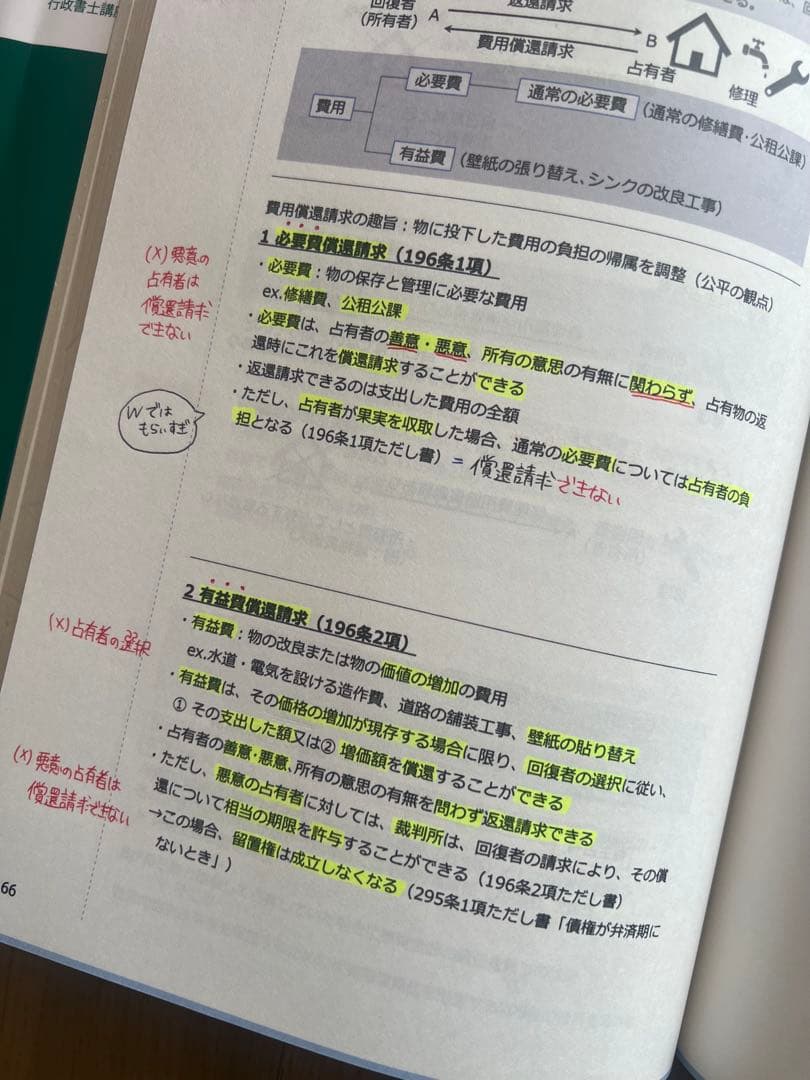 行政書士講座
返還請求
回復者
(所有者)
A
B
費用償還請求
占有者
修理
費用
必要費
通常の必要費
(通常の修繕費・公租公課)
有益費
(壁紙の張り替え、シンクの改良工事)
費用償還請求の趣旨:物に投下した費用の負担の帰属を調整(公平の観点)
1 必要費償還請求(196条1項)
・必要費:物の保存と管理に必要な費用
ex.修繕費、公租公課
・必要費は、占有者の善意・悪意、所有の意思の有無に関わらず、占有物の返
還時にこれを償還請求することができる
・返還請求できるのは支出した費用の全額
・ただし、占有者が果実を収取した場合、通常の必要費については占有者の負
担となる(196条1項ただし書)=償還請求できない
(×)悪意の
占有者は
償還請求
できない
Wでは
もらいすぎ
2 有益費償還請求(196条2項)
・有益費:物の改良または物の価値の増加の費用
ex.水道・電気を設ける造作費、道路の舗装工事、壁紙の貼り替え
・有益費は、その価格の増加が現存する場合に限り、回復者の選択に従い、
① その支出した額又は② 増価額を償還することができる
・占有者の善意・悪意、所有の意思の有無を問わず返還請求できる
・ただし、悪意の占有者に対しては、裁判所は、回復者の請求により、その償
還について相当の期限を許与することができる(196条2項ただし書)
→この場合、留置権は成立しなくなる(295条1項ただし書「債権が弁済期に
ないとき」)
(×)占有者の選択
(×)悪意の占有者は
償還請求できない
66